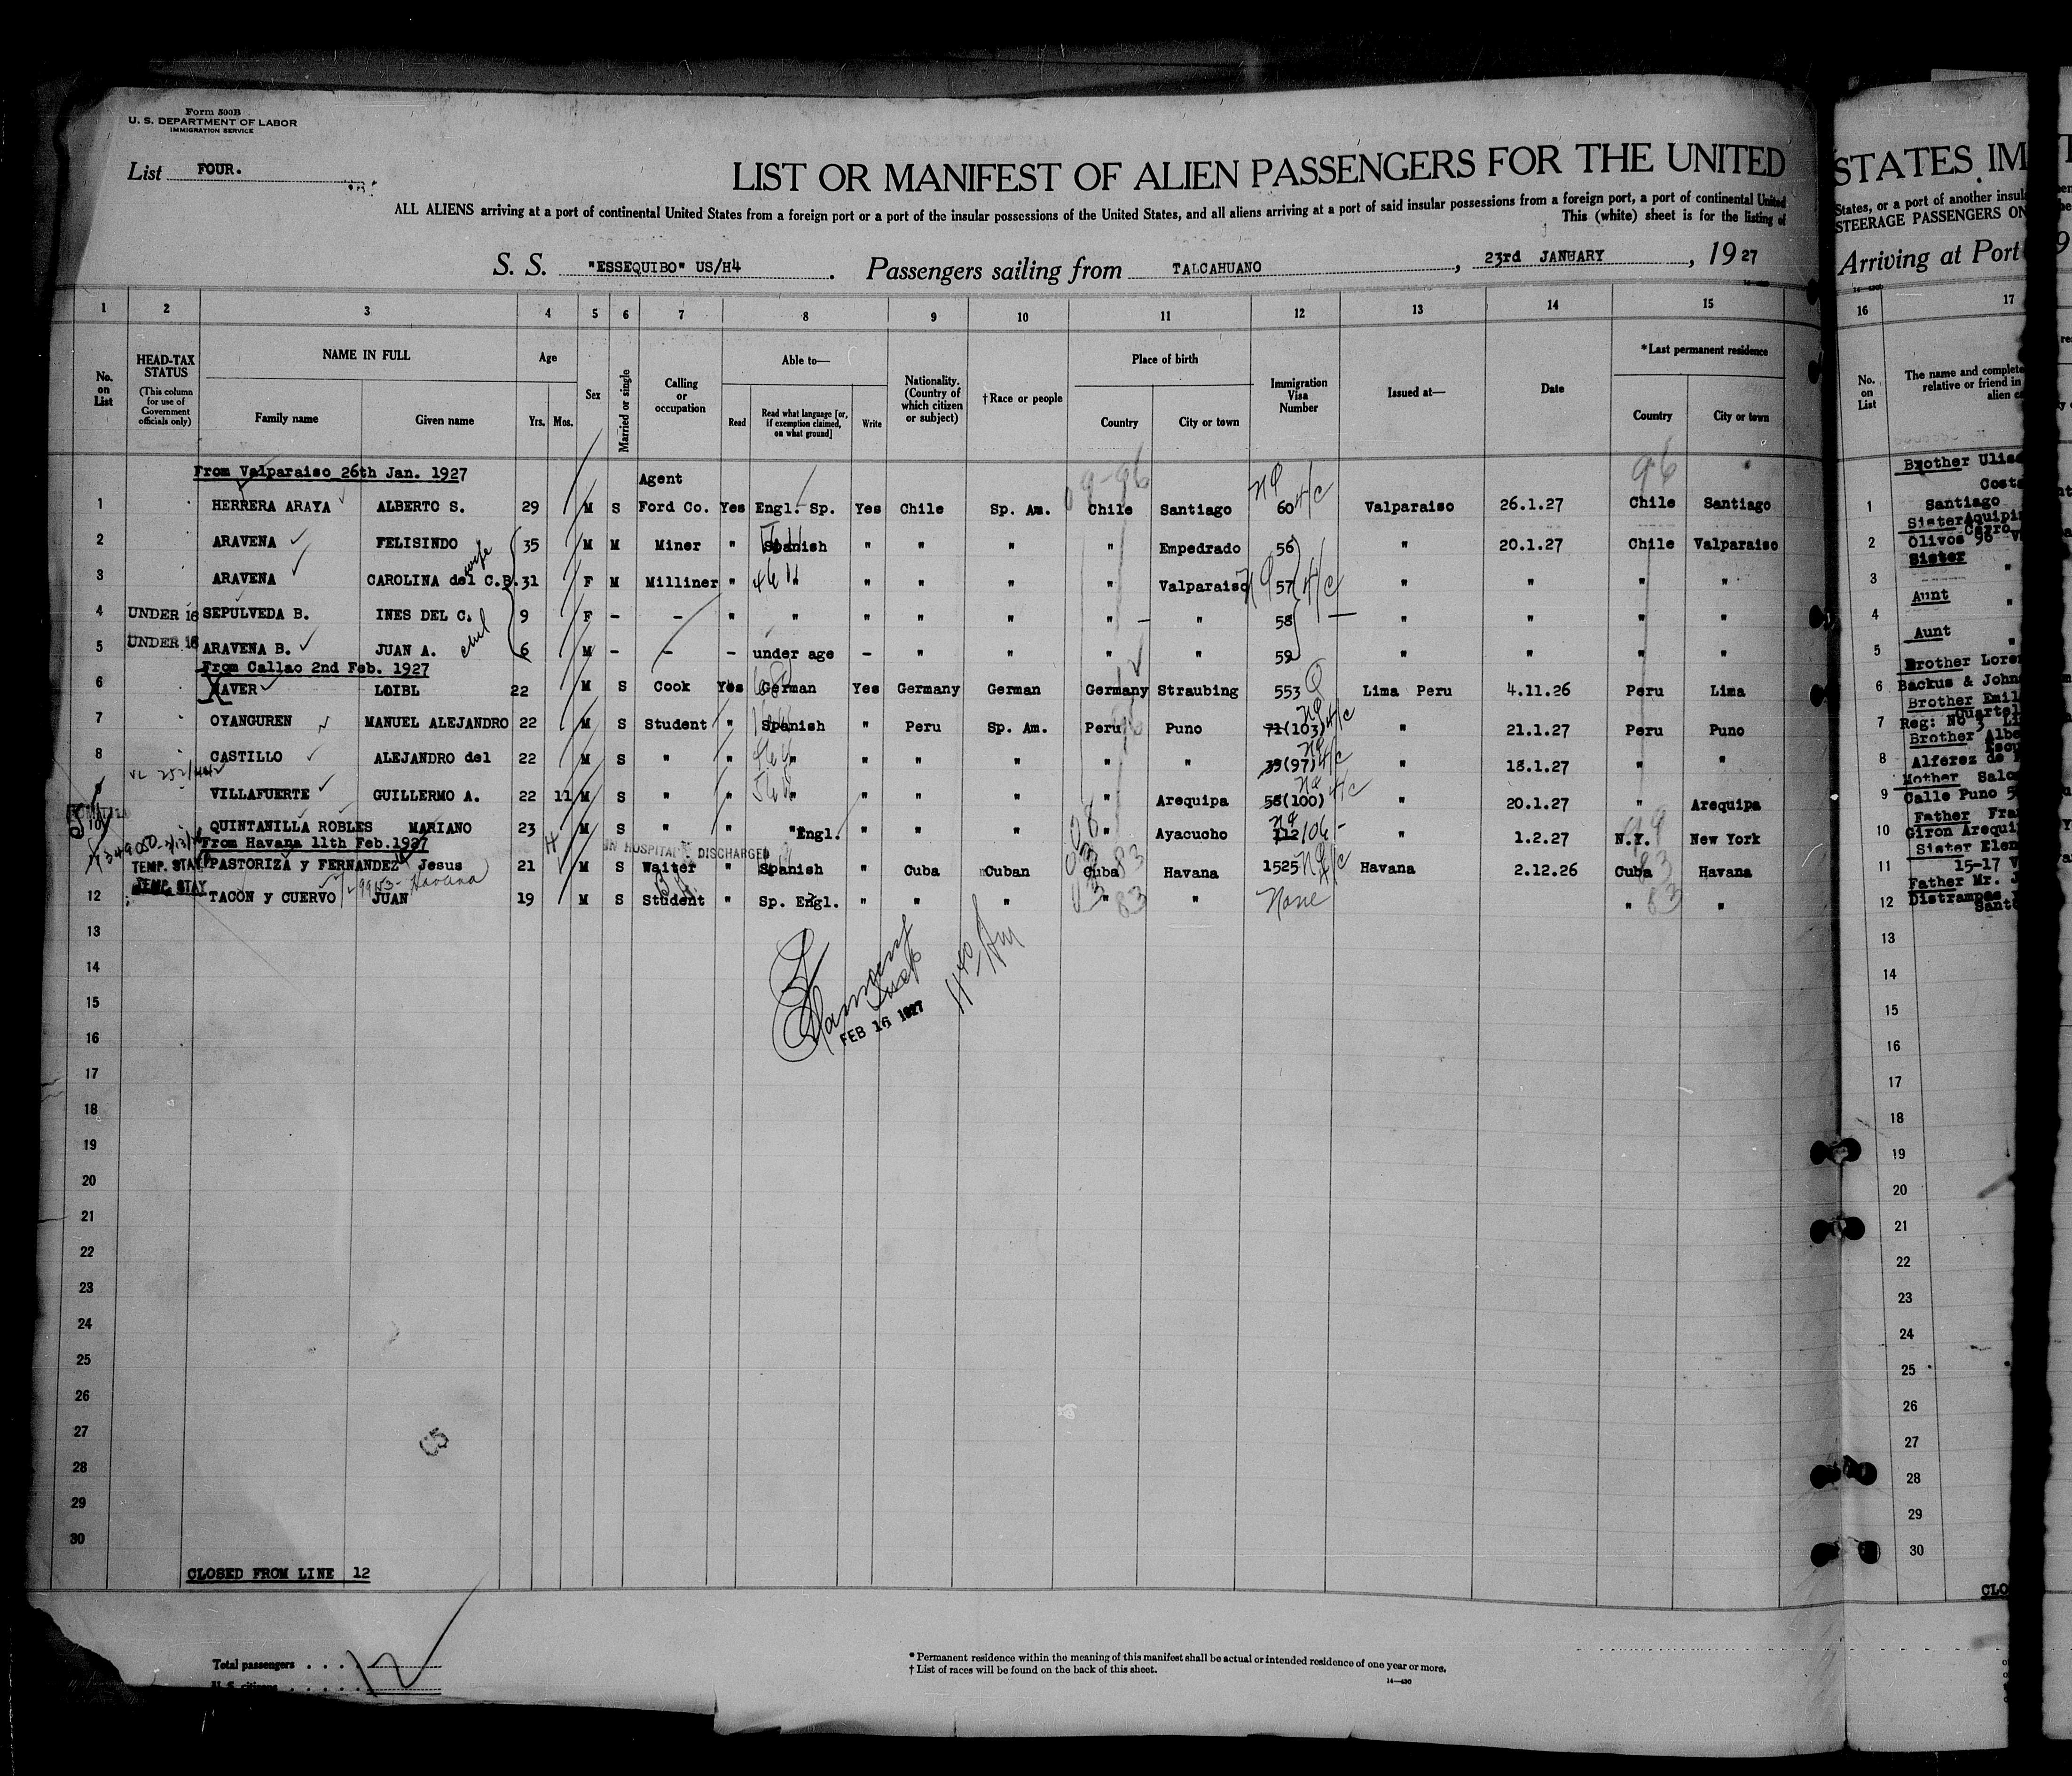 Form 500B
U. S. DEPARTMENT OF LABOR
IMMIGRATION SERVICE
List FOUR.
LIST OR MANIFEST OF ALIEN PASSENGERS FOR THE UNITED
ALL ALIENS arriving at a port of continental United States from a foreign port or a port of the insular possessions of the United States, and all aliens arriving at a port of said insular possessions from a foreign port, a port of continental United
This (white) sheet is for the listing of
S. S. "ESSEQUIBO" US/H4 . Passengers sailing from TALCAHUANO , 23rd JANUARY , 1927
1 2 3 4 5 6 7 8 9 10 11 12 13 14 15
No. on List
HEAD-TAX STATUS (This column for use of Government officials only)
NAME IN FULL
Family name Given name
Age
Yrs. Mos.
Sex
Married or single
Calling or occupation
Able to—
Read Read what language [or, if exemption claimed, on what ground] Write
Nationality. (Country of which citizen or subject)
†Race or people
Place of birth
Country City or town
Immigration Visa Number
Issued at—
Date
*Last permanent residence
Country City or town
From Valparaiso 26th Jan. 1927 Agent 96
1 HERRERA ARAYA ALBERTO S. 29 M S Ford Co. Yes Engl. Sp. Yes Chile Sp. Am. Chile Santiago 60 Valparaiso 26.1.27 Chile Santiago
2 ARAVENA FELISINDO 35 M M Miner " Spanish " " " " Empedrado 56 " 20.1.27 Chile Valparaiso
wife
3 ARAVENA CAROLINA del C.B. 31 F M Milliner " " " " " " Valparaiso 57 " " " "
4 UNDER 16 SEPULVEDA B. INES DEL C. 9 F - - " " " " " " " 58 " " " "
5 UNDER 16 ARAVENA B. JUAN A. 6 M - - - under age - " " " " 59 " " " "
From Callao 2nd Feb. 1927
6 XAVER LOIBL 22 M S Cook Yes German Yes Germany German Germany Straubing 553 Lima Peru 4.11.26 Peru Lima
7 OYANGUREN MANUEL ALEJANDRO 22 M S Student " Spanish " Peru Sp. Am. Peru Puno 71(103) " 21.1.27 Peru Puno
8 CASTILLO ALEJANDRO del 22 M S " " " " " " " " 39(97) " 18.1.27 " "
VILLAFUERTE GUILLERMO A. 22 11 M S " " " " " " " Arequipa 58(100) " 20.1.27 " Arequipa
10 QUINTANILLA ROBLES MARIANO 23 M S " " " Engl. " " " " Ayacucho 112 106 " 1.2.27 N.Y. New York
From Havana 11th Feb.1927
IN HOSPITAL DISCHARGED
TEMP. STAY PASTORIZA y FERNANDEZ Jesus 21 M S Waiter " Spanish " Cuba Cuban Cuba Havana 1525 Havana 2.12.26 Cuba Havana
TEMP. STAY
Havana
12 TACON y CUERVO JUAN 19 M S Student " Sp. Engl. " " " " " None " "
13
14
15
FEB 16 1927
16
17
18
19
20
21
22
23
24
25
26
27
28
29
30
CLOSED FROM LINE 12
Total passengers . . . . 12
U. S. citizens
* Permanent residence within the meaning of this manifest shall be actual or intended residence of one year or more.
† List of races will be found on the back of this sheet.
14—430
STATES IM
States, or a port of another insul
STEERAGE PASSENGERS ON
Arriving at Port
16 17
No. on List
The name and complete
relative or friend in
alien
Brother Ulis
Costa
1 Santiago
Sister Aquipi
Cerro
2 Olivos 96
Sister
3 "
Aunt
4 "
Aunt
5 "
Brother Loren
6 Backus & John
Brother Emil
Quartel
7 Reg: No 3
Brother Albe
8 Alferez de
Mother Salo
9 Calle Puno 5
Father Fra
10 Giron Arequi
Sister Elen
11 15-17
Father Mr.
12 Distrampes
Sant
13
14
15
16
17
18
19
20
21
22
23
24
25
26
27
28
29
30
CLO